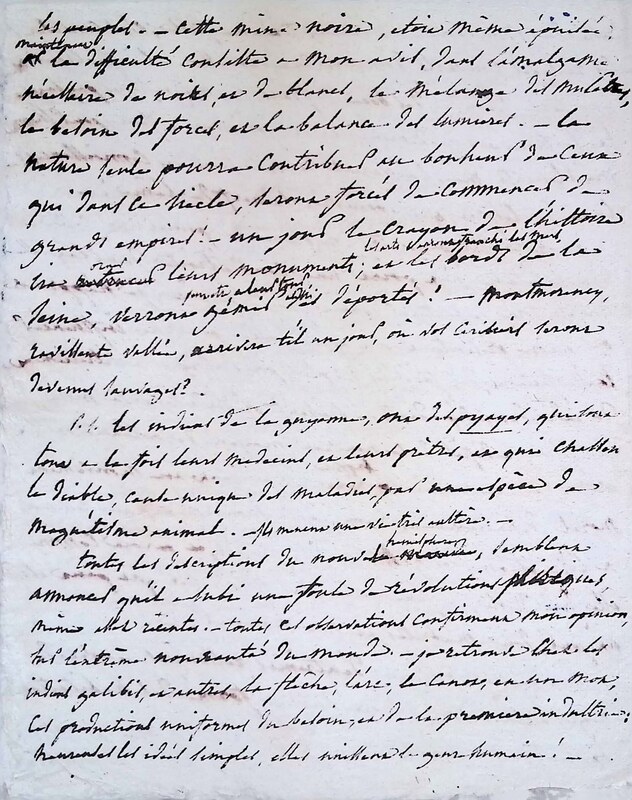 les peuples. - Cette mine noire, etoit même épuisée,
maintenant
la difficulté consiste a mon avis, dans l'amalgame
nécessaire de noirs, et de blancs, le mélange des mulatres,
le besoin des forces, et la balance des lumieres. - la
nature seule pourra contribuer au bonheur de ceux
qui dans ce siecle, seront forcés de commencer de
grands empires! - un jour le crayon de l'histoire
ira leurs monuments, et les bords de la
les arts auront franchi les mers
Seine, verront gémir des déportés! - Montmorency,
peut etre a leur tour
ravissante vallée, arrivera t'il un jour, où vos ceribiers seront
devenus sauvages?
P.S. les indiens de la guyanne, ont des pyayes, qui sont
tous a la fois leurs medecins, et leurs prêtres, et qui chassent
le diable, cause unique des maladies, par une espèce de
magnétisme animal. - ils menent une vie très austère. -
toutes les descriptions du nouvel hemisphere, semblent
annoncer qu'il a subi une foule de révolutions physiques,
même assez récentes. - toutes ces observations confirment mon opinion,
sur l'extrême nouveauté du monde. - je retrouve chez les
indiens galibis, et autres, la flèche, l'arc, le canot, en un mot,
ces productions uniformes du besoin, et de la premiere industrie;
heureuses les idées simples, elles unissent le genre humain! -